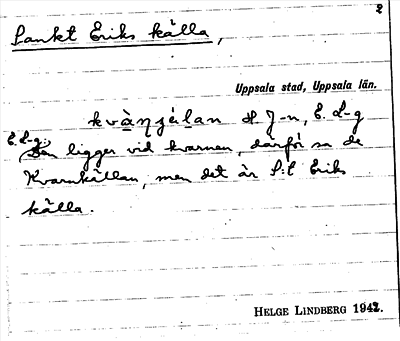 2
Sankt Eriks källa,
Uppsala stad, Uppsala län.
kvàŋɟéḷan H J-n, E. L-g
E. L-g:
Den ligger vid kvarnen, därför sa de
Kvarnkällan, men det är S:t Eriks
källa.
HELGE LINDBERG 1942.